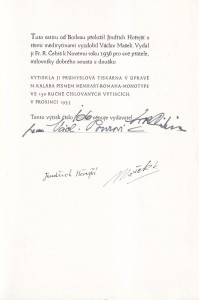 Tuto satiru od Boileau přeložil Jindřich Hořejší a
třemi mědirytinami vyzdobil Václav Mašek. Vydal
ji Fr. R. Čebiš k Novému roku 1936 pro své přátele,
milovníky dobrého soustа a doušku
VYTISKLA JI PRŮMYSLOVÁ TISKÁRNA V ÚPRAVĚ
M. KALÁBA PÍSMEM MENHARTROMANA-MONOTYPE
VE 130 RUČNĚ ČÍSLOVANÝCH VÝTISCÍCH
V PROSINCI 1935
Tento výtisk číslo 106 věnuje vydavatel
panu
Jindřich Hořejší
VMašek